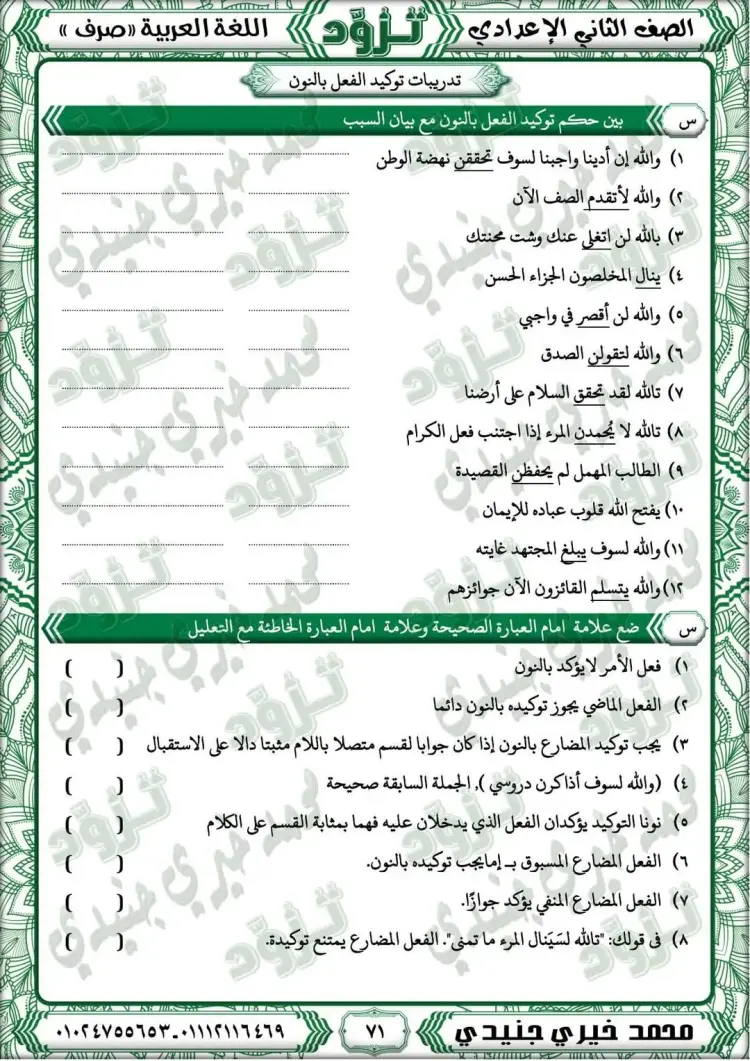 الصف الثاني الإعدادي تزوّد اللغة العربية «صرف»
تدريبات توكيد الفعل بالنون
س بين حكم توكيد الفعل بالنون مع بيان السبب
١) والله إن أدينا واجبنا لسوف تحققن نهضة الوطن
٢) والله لأتقدم الصف الآن
٣) بالله لن اتغلى عنك وشت محنتك
٤) ينال المخلصون الجزاء الحسن
٥) والله لن أقصر في واجبي
٦) والله لتقولن الصدق
٧) تالله لقد تحقق السلام على أرضنا
٨) تالله لا يُحمدن المرء إذا اجتنب فعل الكرام
٩) الطالب المهمل لم يحفظن القصيدة
١٠) يفتح الله قلوب عباده للإيمان
١١) والله لسوف يبلغ المجتهد غايته
١٢) والله يتسلم الفائزون الآن جوائزهم
س ضع علامة امام العبارة الصحيحة وعلامة امام العبارة الخاطئة مع التعليل
١) فعل الأمر لا يؤكد بالنون ( )
٢) الفعل الماضي يجوز توكيده بالنون دائما ( )
٣) يجب توكيد المضارع بالنون إذا كان جوابا لقسم متصلا باللام مثبتا دالا على الاستقبال ( )
٤) (والله لسوف أذاكرن دروسي ), الجملة السابقة صحيحة ( )
٥) نونا التوكيد يؤكدان الفعل الذي يدخلان عليه فهما بمثابة القسم على الكلام ( )
٦) الفعل المضارع المسبوق بـ إما يجب توكيده بالنون. ( )
٧) الفعل المضارع المنفي يؤكد جوازًا. ( )
٨) فى قولك: "تالله لسَيَنال المرء ما تمنى". الفعل المضارع يمتنع توكيدة. ( )
محمد خيري جنيدي ٧١ ٠١١١٢١١٦٤٦٩-٠١٠٢٤٧٥٥٦٥٣